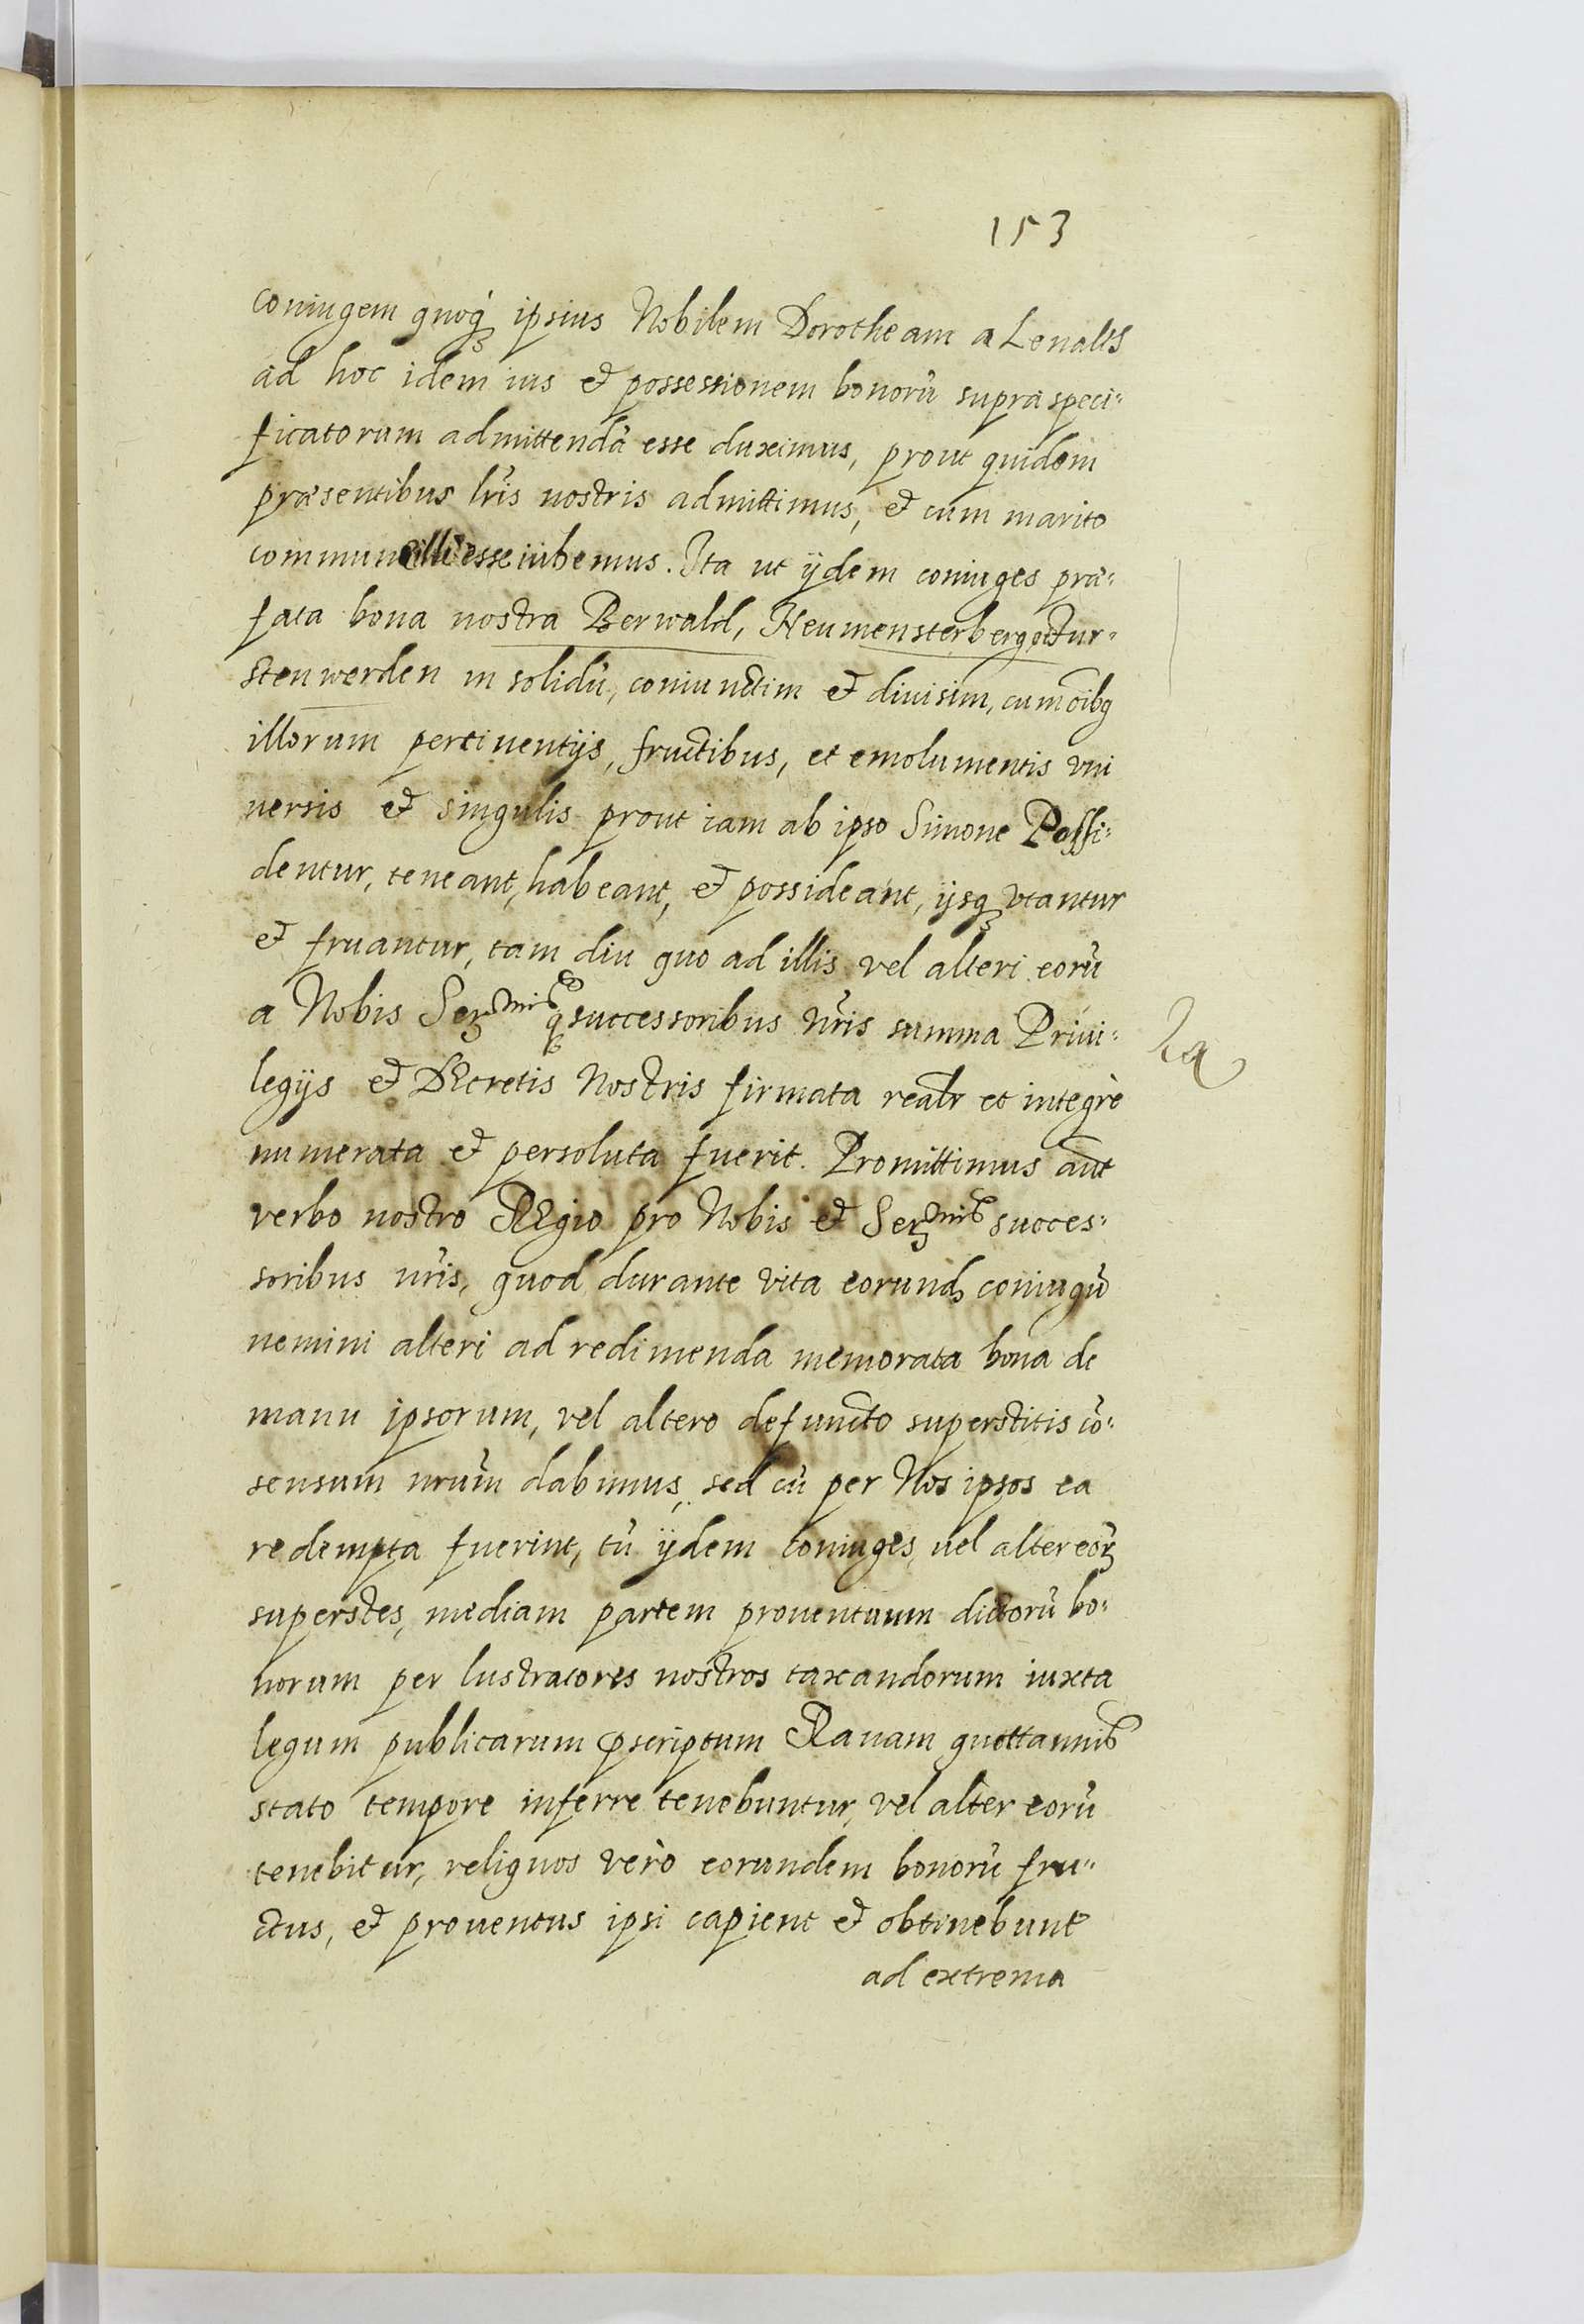 153
coniugem quoq́ꝫ ipsius Nobilem Dorotheam a Lenalts
ad hoc idem ius et possessionem bonorũ supra speci-
ficatorum admittendã esse duximus, prout quidem
præsentibus lr̃is nostris admittimus, et cum marito
commune illi esse iubemus. Ita ut ijdem coniuges præ-
fata bona nostra Berwald, Neumensterberg et Tur-
stenwerden in solidũ, coniunctim et diuisim, cum oĩbq
illorum pertinentijs, fructibus, et emolumentis vni
uersis et singulis prout iam ab ipso Simone Possi-
dentur, teneant, habeant, et possideant, ijsqꝫ vtantur
et fruantur, tam diu quo ad illis vel alteri eorũ
a Nobis Serᵐⁱˢqꝫ successoribus nr̃is summa Priui-
la
legijs et DEcretis Nostris firmata realr̃ et integrè
numerata et persoluta fuerit. Promittimus aũt
verbo nostro REgio pro Nobis et Serᵐⁱˢ succes-
soribus nr̃is, quod durante vita eorundꝫ coniugũ
nemini alteri ad redimenda memorata bona de
manu ipsorum, vel altero defuncto superstitis cõ-
sensum nrũm dabimus, sed cũ per Nos ipsos ea
redempta fuerint, tũ ijdem coniuges, uel alter eoꝝ
superstes, mediam partem prouentuum dictorũ bo-
norum per lustratores nostros taxandorum iuxta
legum publicarum p̃scriptum Rauam quottannis
stato tempore inferre tenebuntur, vel alter eorũ
tenebitur, reliquos verò eorundem bonorũ fru-
ctus, et prouentus ipsi capient et obtinebunt
ad extrema